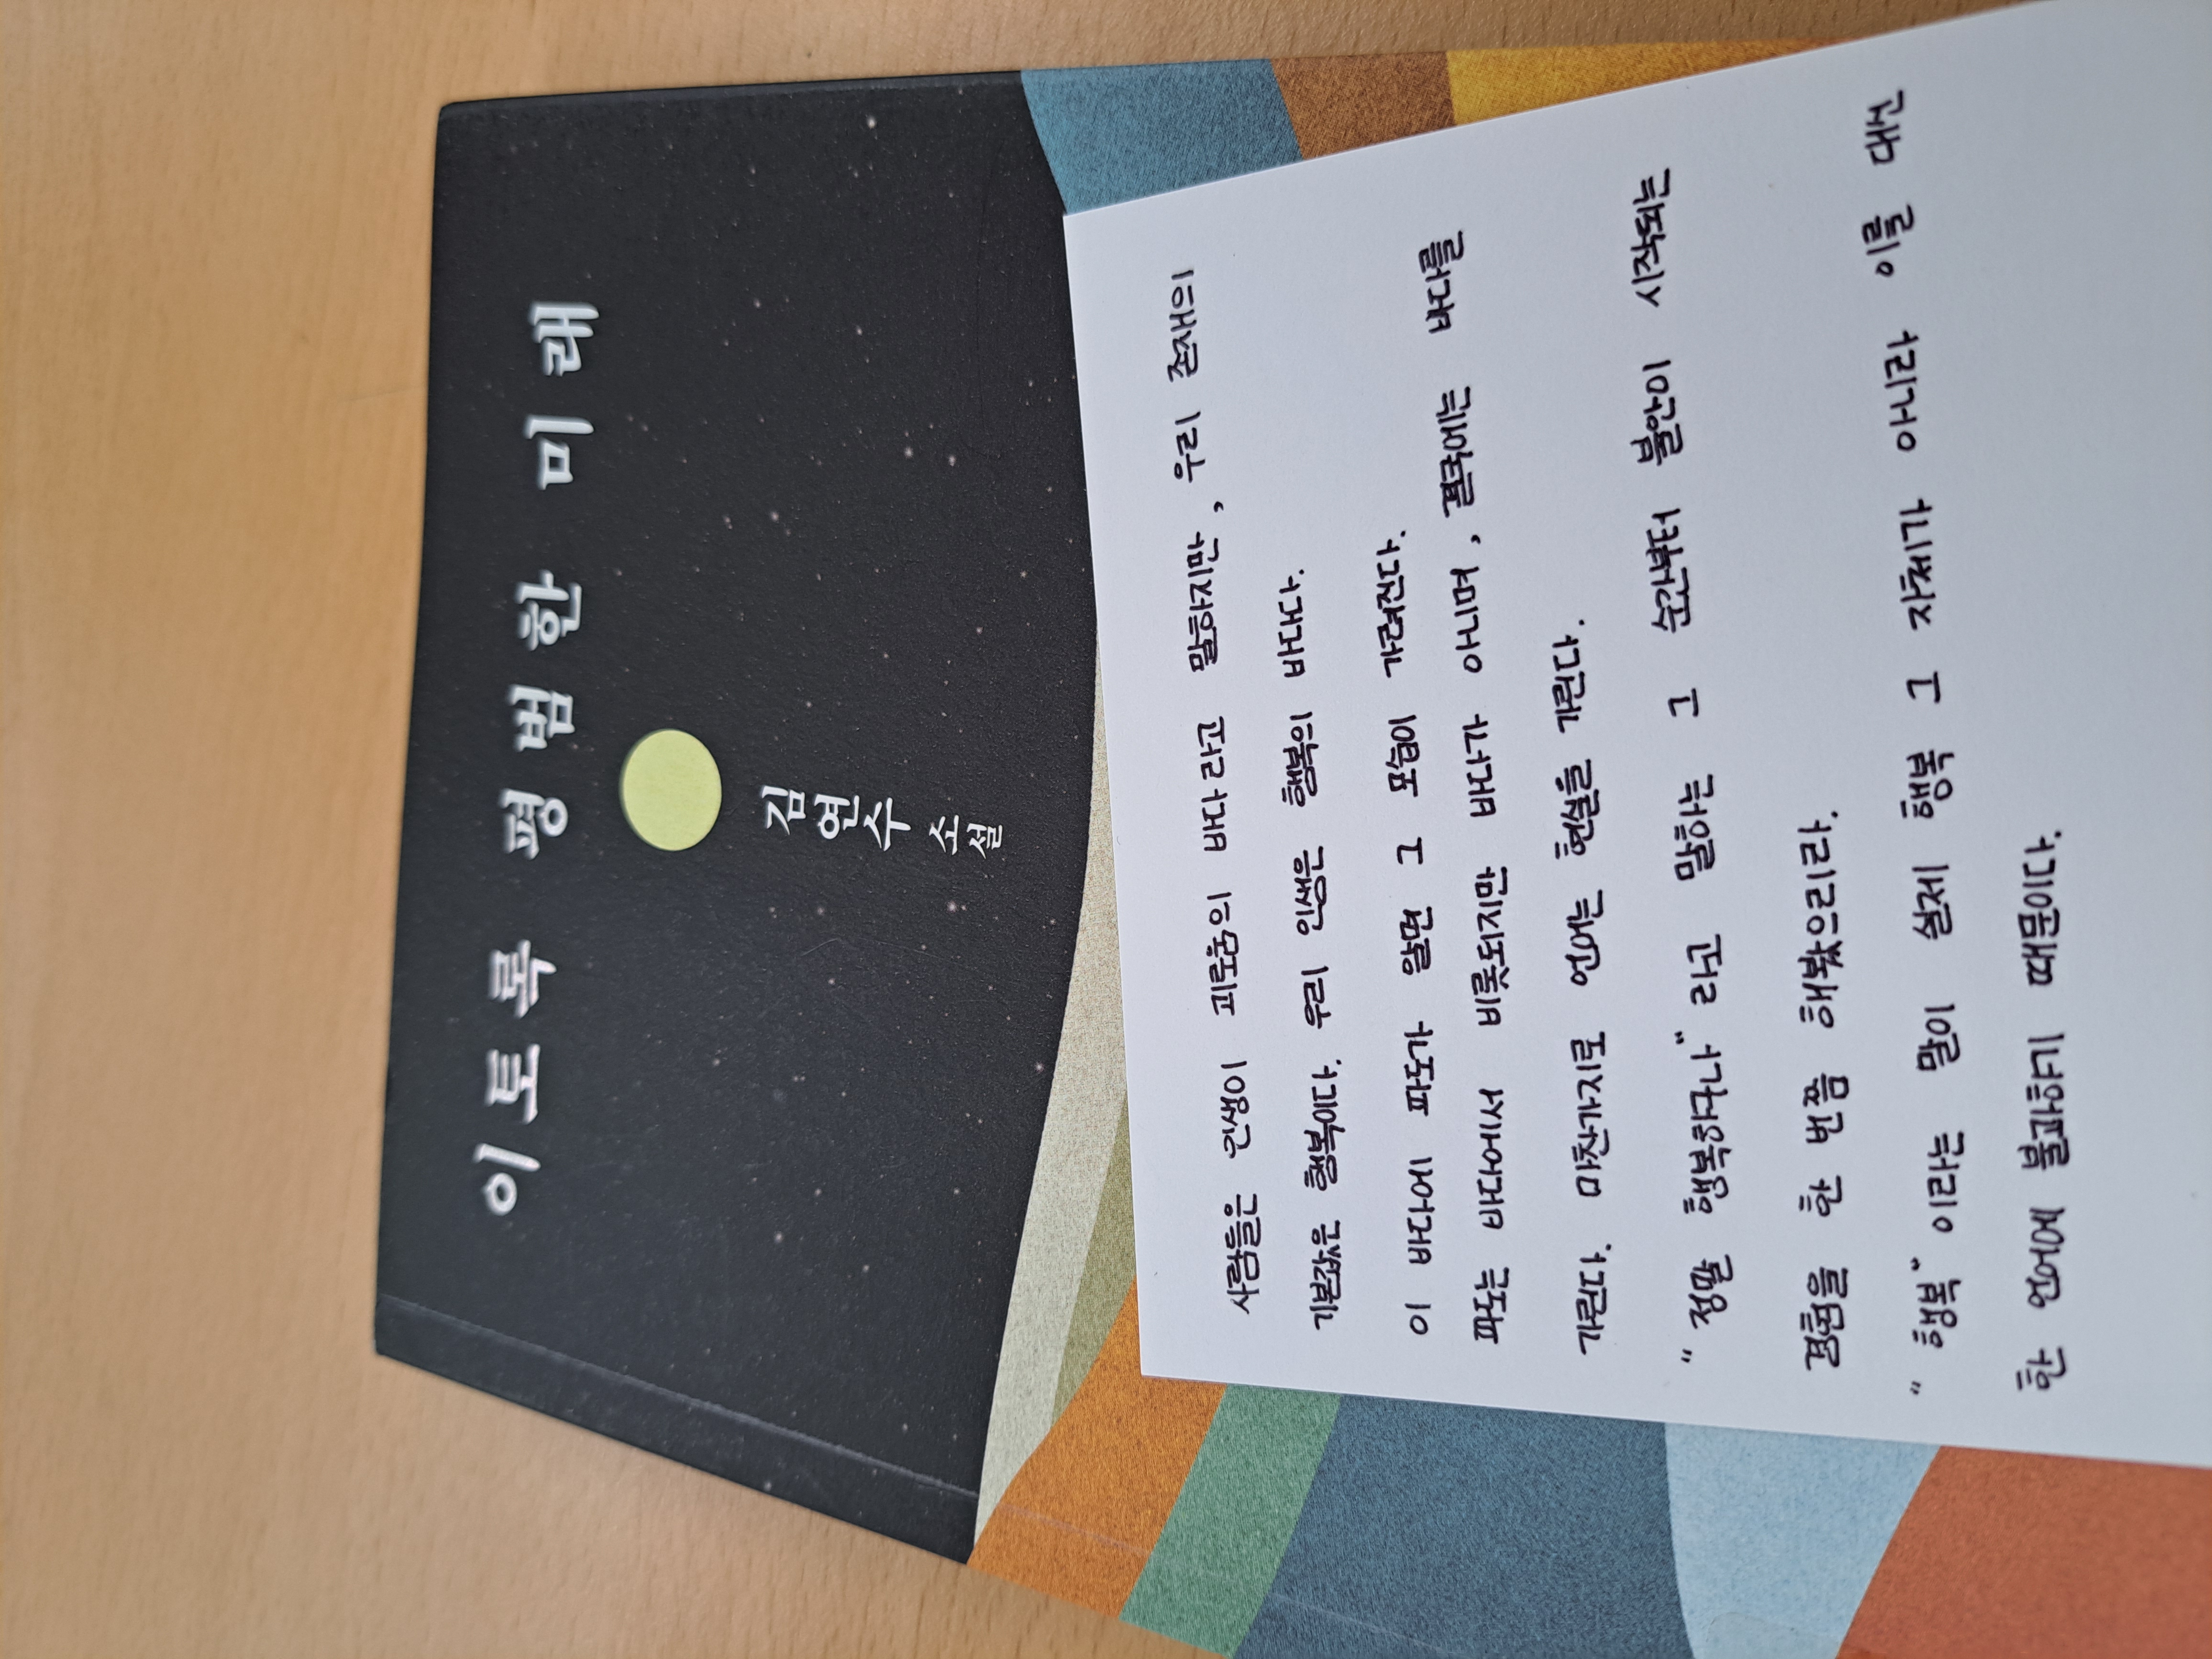 이토록 평범한 미래
김연수
소설
사람들은 인생이 괴로움의 바다라고 말하지만, 우리 존재의
기본값은 행복이다. 우리 인생은 행복의 바다다.
이 바다에 파도가 일면 그 모습이 가려진다.
파도는 바다에서 비롯되지만 바다가 아니며, 결국에는 바다를
가린다. 마찬가지로 언어는 현실을 가린다.
"정말 행복하구나" 라고 말하는 그 순간부터 불안이 시작되는
경험을 한 번쯤 해봤으리라.
"행복" 이라는 말이 실제 행복 그 자체가 아니라 이를 대신
한 언어에 불과하기 때문이다.